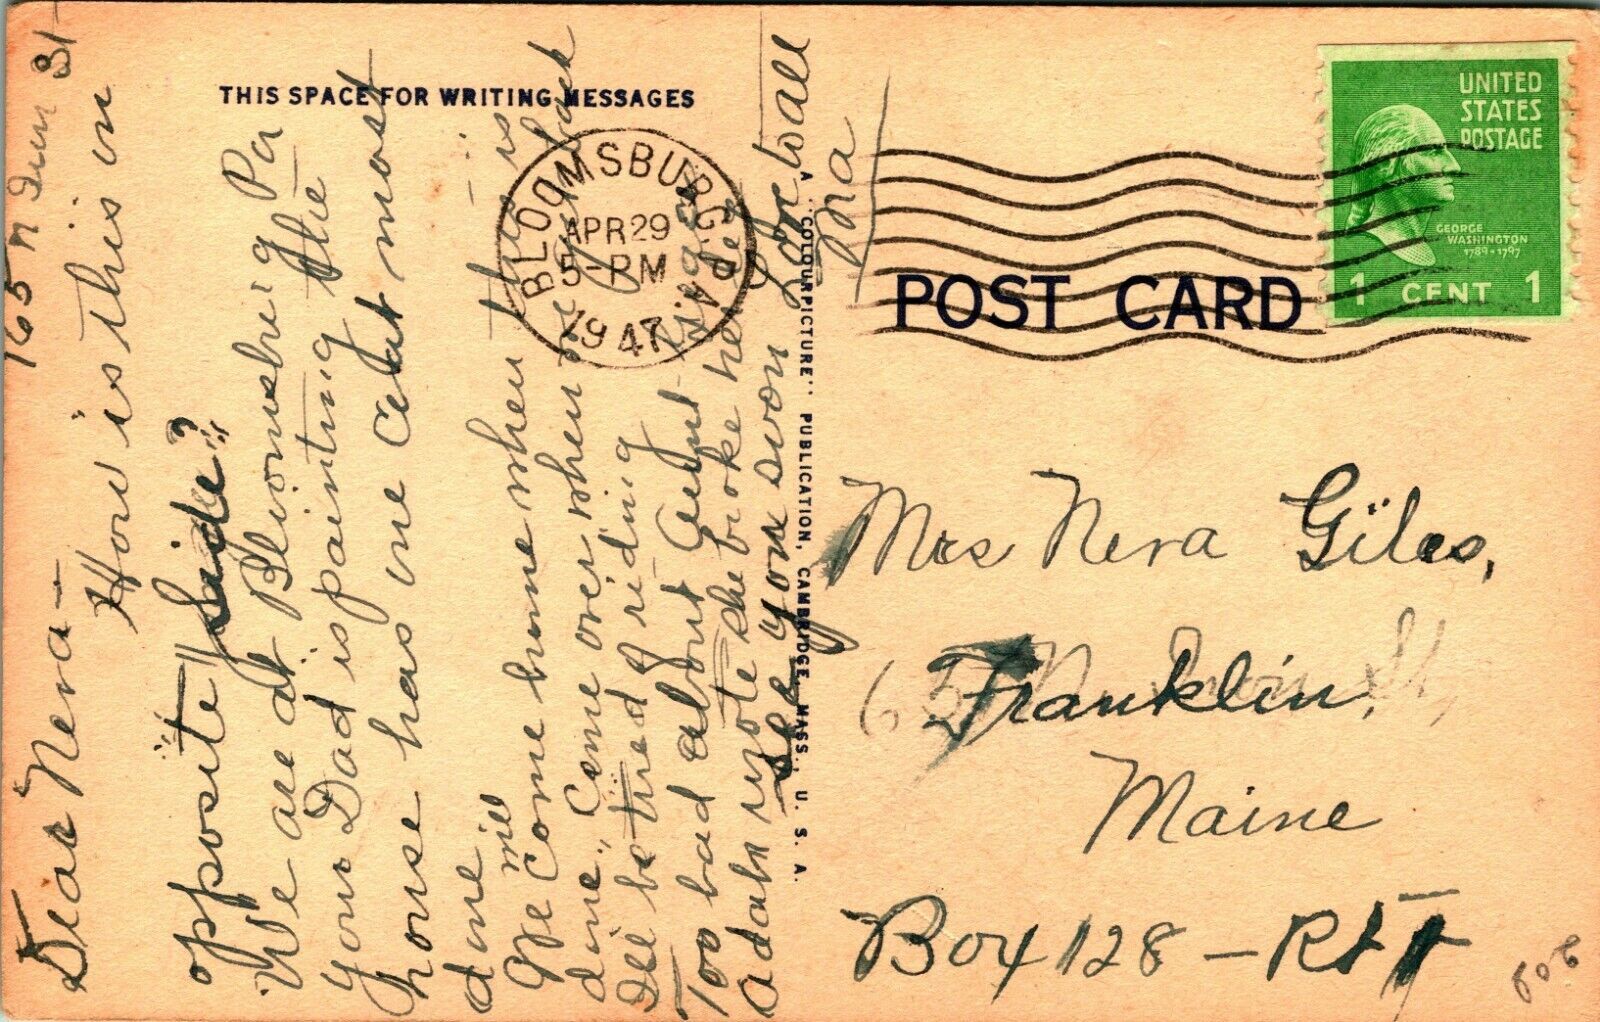 THIS SPACE FOR WRITING MESSAGES
Dear Neva —
How is this on
opposite "Side"?
We are at Bloomsburg Pa
your Dad is painting the
house has one coat most
done
We will come home when this is
done, Come over when we get back
I'll be tired of riding
Too bad about Aunt
Adah wrote she broke her leg
See you soon
Love to all
Ma
BLOOMSBURG, PA.
APR 29
5-PM
1947
A "COLOURPICTURE" PUBLICATION, CAMBRIDGE, MASS., U. S. A.
POST CARD
UNITED
STATES
POSTAGE
GEORGE
WASHINGTON
1789-1797
1 CENT 1
Mrs Neva Giles,
Franklin,
Maine
Box 128 —